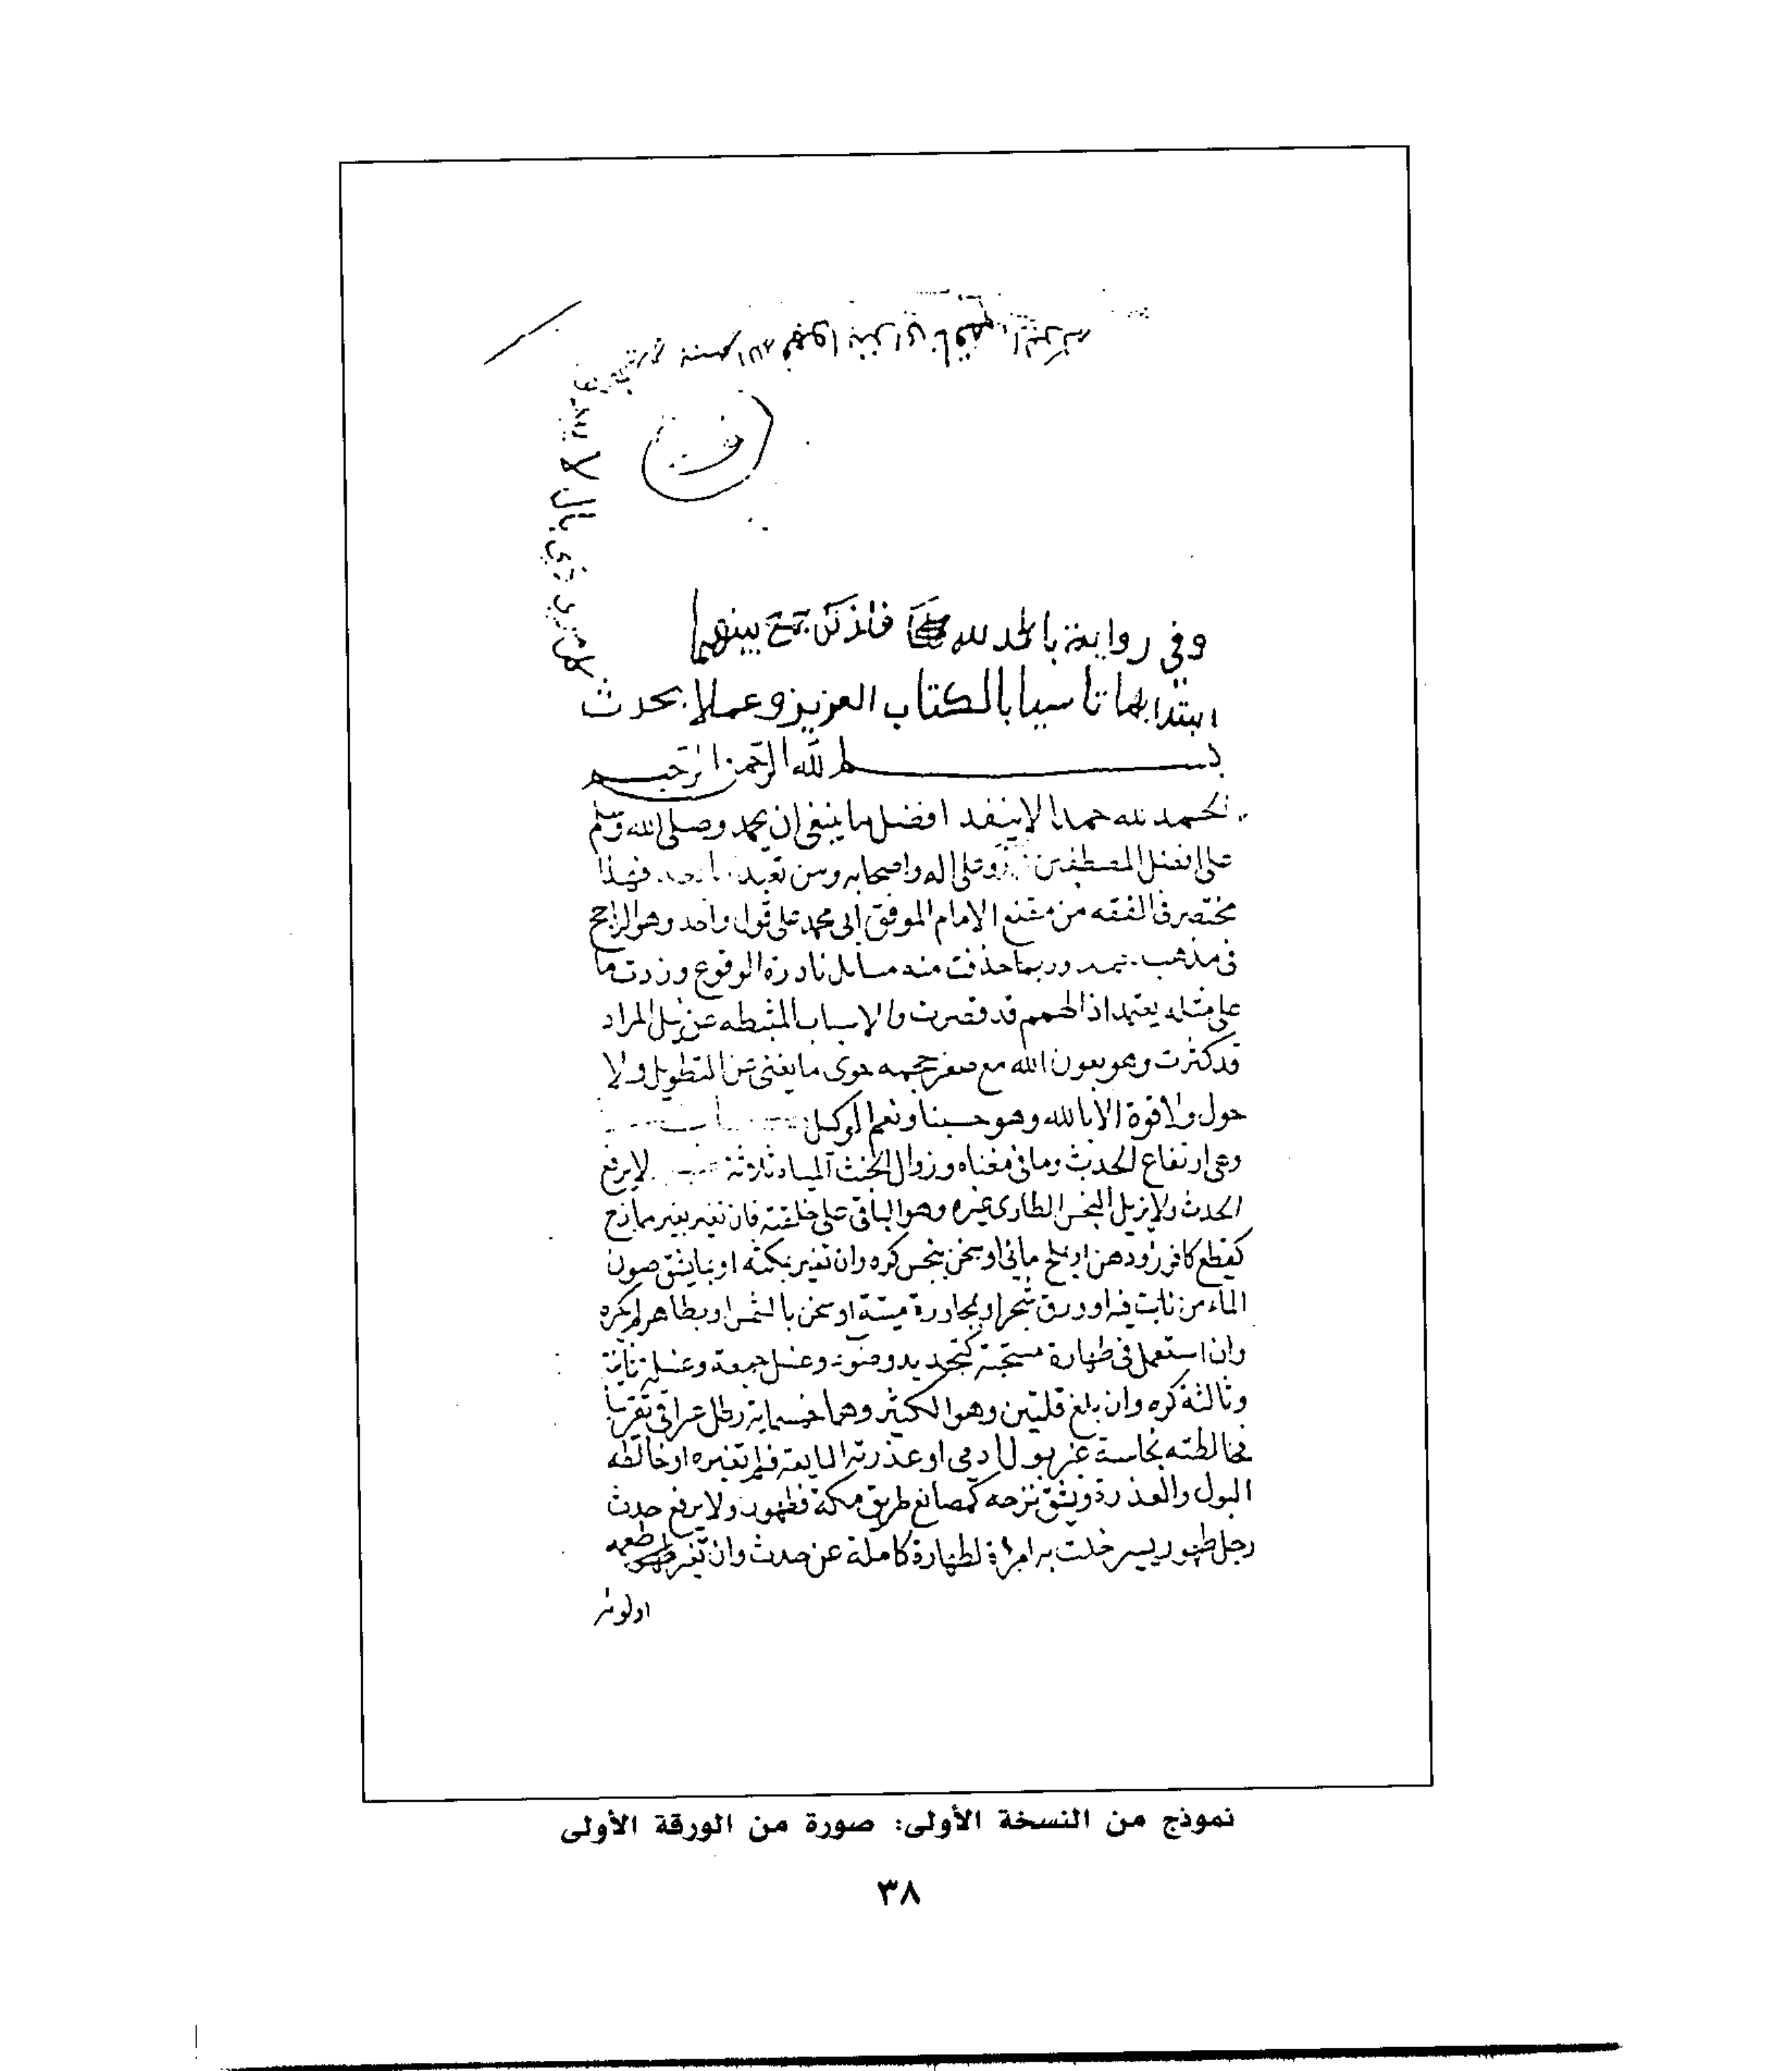 وفي رواية بالحمد لله فلذلك جمع بينهما
ابتدا بهما تاسيا بالكتاب العزيز وعملا بحدث
بسم لله الرحمن الرحيم
الحمد لله حمدا لا ينفد افضل ما ينبغي ان يحمد وصلى الله وسلم
على افضل المصطفين وعلى اله واصحابه ومن تعبد بعد فهذا
مختصر في الفقه من مقنع الامام الموفق ابي محمد على قول واحد وهو الراجح
في مذهب وربما حذفت منه مسائل نادرة الوقوع وزدت ما
على مثله يعتمد اذ الهمم قد قصرت والاسباب المثبطه عن نيل المراد
قد كثرت وهو بعون الله مع صغر حجمه حوى ما يغني عن التطويل ولا
حول ولا قوة الا بالله وهو حسبنا ونعم الوكيل
وهي ارتفاع الحدث وما في معناه وزوال الخبث المياه ثلاثة لا يرفع
الحدث ولا يزيل النجس الطاري غيره وهو الباقي على خلقته فان تغير بغير ممازج
كقطع كافور ودهن او بملح مائي او سخن بنجس كره وان تغير بمكثه او بما يشق صون
الماء من نابت فيه او ورق شجر او بمجاورة ميتة او سخن بالشمس او بطاهر لم يكره
وان استعمل في طهارة مستحبة كتجديد وضوء وغسل جمعة وغسلة ثانية
وثالثة كره وان بلغ قلتين وهو الكثير وهما خمسماية رطل عراقي تقريبا
فخالطته نجاسة غير بول ادمي او عذرته المايعة فلم تغيره او خالطه
البول والعذرة ويشق نزحه كمصانع طريق مكة فطهور ولا يرفع حدث
رجل طهور يسير خلت به امراة لطهارة كاملة عن حدث وان تغير طعمه
او لونه
نموذج من النسخة الأولى: صورة من الورقة الأولى
٣٨